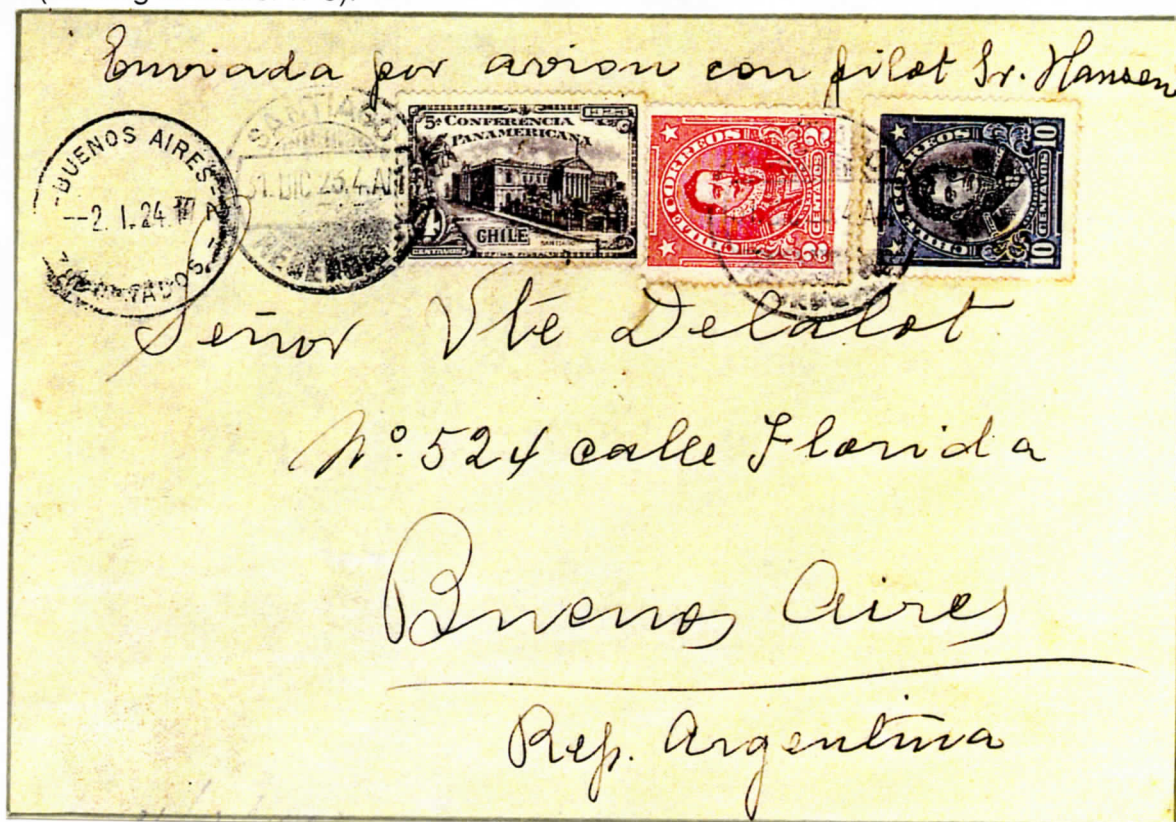 Enviada por avion con pilot Sr. Hansen
BUENOS AIRES
2. I. 24
SANTIAGO
31. DIC 23. 4. A
5ª CONFERENCIA
PANAMERICANA
4
CENTAVOS
CHILE
SANTIAGO
CHILE CORREOS
2 CENTAVOS 2
CHILE CORREOS
10 CENTAVOS 10
Señor Vte Delalot
Nº 524 calle Florida
Buenos Aires
Rep. Argentina